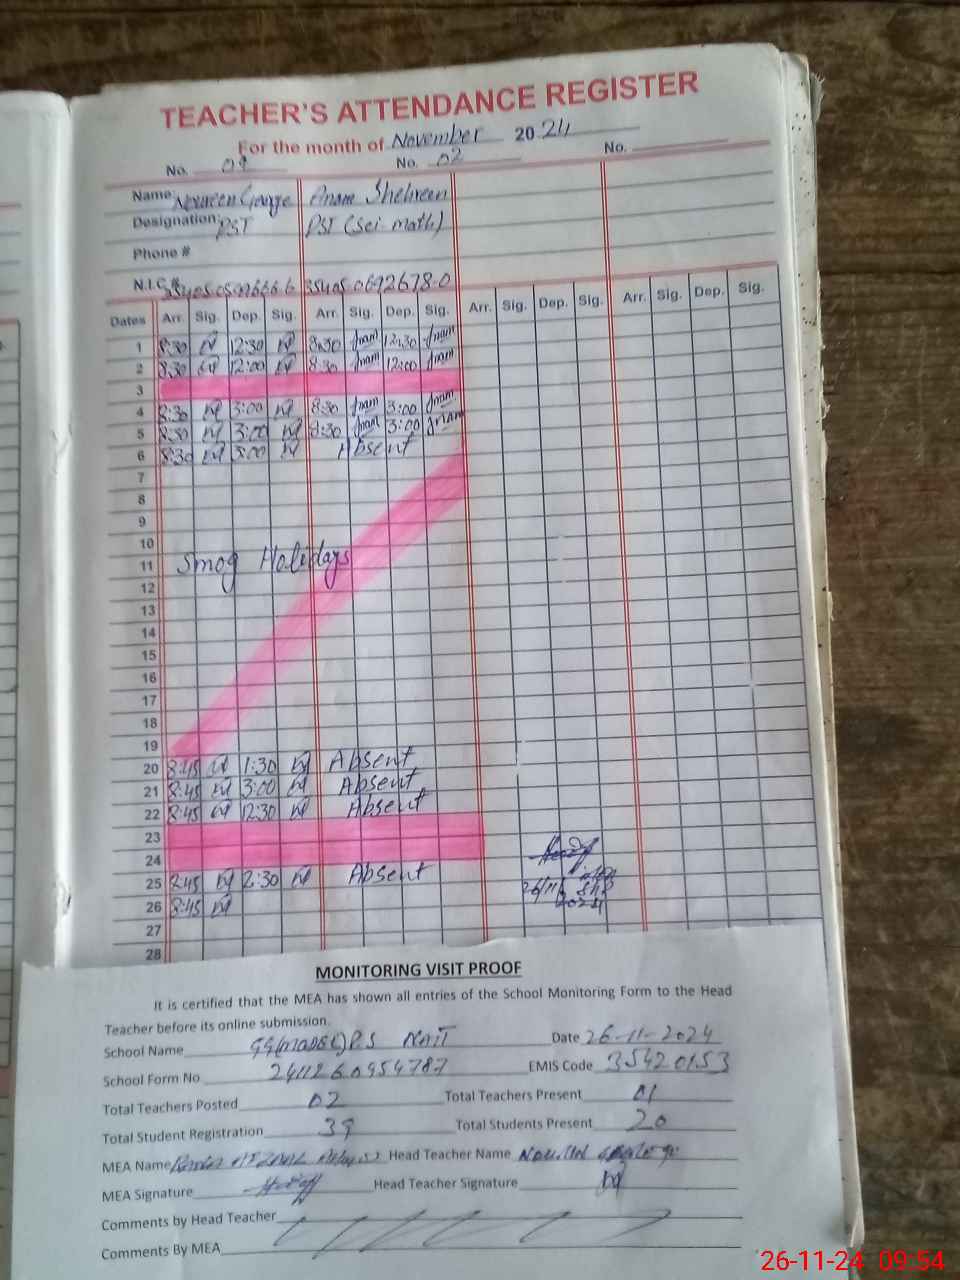 TEACHER'S ATTENDANCE REGISTER
For the month of November 2024
No. 01 No. 02 No.
Name: Noureen George Anam Shehreen
Designation: PST PST (Sci-math)
Phone #
N.I.C #
Dates Arr. Sig. Dep. Sig. Arr. Sig. Dep. Sig. Arr. Sig. Dep. Sig. Arr. Sig. Dep. Sig.
1 8:30 12:30 8:30 Anam 12:30 Anam
2 8:30 12:00 8:30 Anam 12:00 Anam
3
4 8:30 3:00 8:30 Anam 3:00 Anam
5 8:30 3:00 8:30 Anam 3:00 Anam
6 8:30 3:00 Absent
7
8
9
10
11 Smog Holidays
12
13
14
15
16
17
18
19
20 8:45 1:30 Absent
21 8:45 3:00 Absent
22 8:45 12:30 Absent
23
24
25 8:45 2:30 Absent
26 8:45 26/11
27 2024
28
MONITORING VISIT PROOF
It is certified that the MEA has shown all entries of the School Monitoring Form to the Head
Teacher before its online submission.
School Name GG(MODEL)P.S Date 26-11-2024
School Form No 2411260954787 EMIS Code 35420153
Total Teachers Posted 02 Total Teachers Present 01
Total Student Registration 39 Total Students Present 20
MEA Name Head Teacher Name
MEA Signature Head Teacher Signature
Comments by Head Teacher
Comments By MEA
26-11-24 09:54